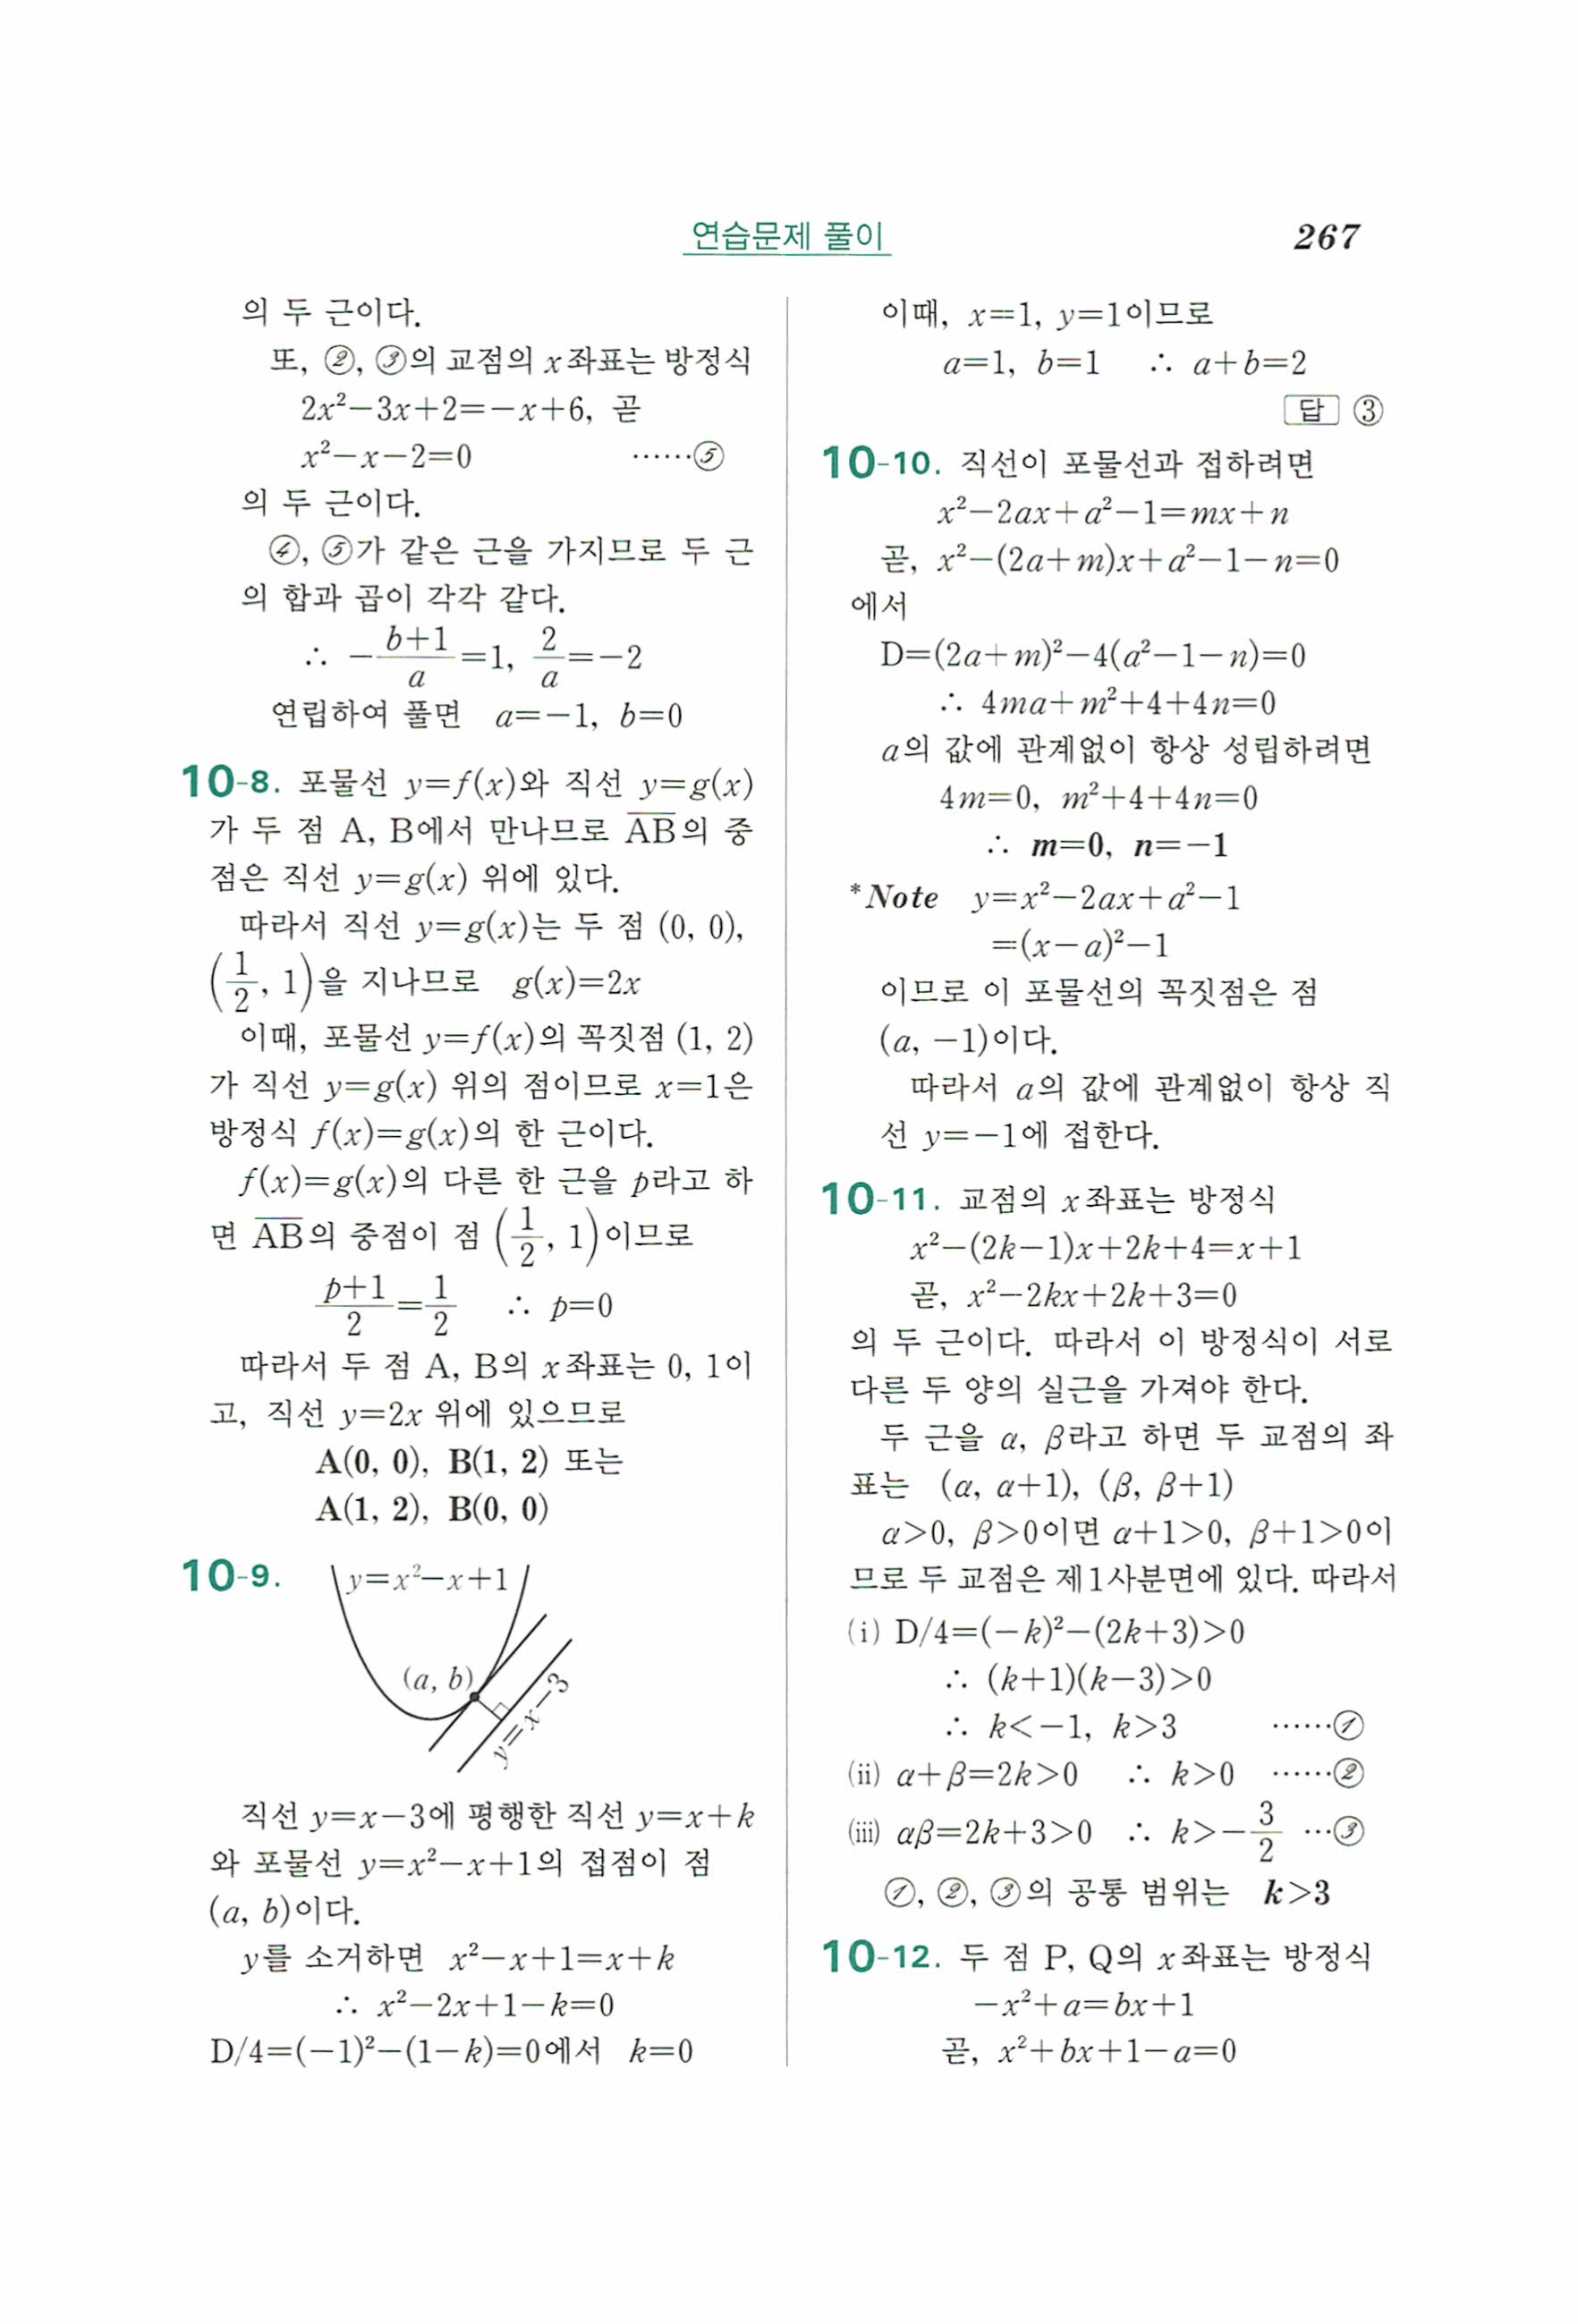 연습문제 풀이
267
의 두 근이다.
또, ②, ③의 교점의 x좌표는 방정식
2x²-3x+2=-x+6, 곧
x²-x-2=0 ······⑤
의 두 근이다.
④, ⑤가 같은 근을 가지므로 두 근
의 합과 곱이 각각 같다.
∴ -(b+1)/a=1, 2/a=-2
연립하여 풀면 a=-1, b=0
10-8. 포물선 y=f(x)와 직선 y=g(x)
가 두 점 A, B에서 만나므로 A̅B̅의 중
점은 직선 y=g(x) 위에 있다.
따라서 직선 y=g(x)는 두 점 (0, 0),
(1/2, 1)을 지나므로 g(x)=2x
이때, 포물선 y=f(x)의 꼭짓점 (1, 2)
가 직선 y=g(x) 위의 점이므로 x=1은
방정식 f(x)=g(x)의 한 근이다.
f(x)=g(x)의 다른 한 근을 p라고 하
면 A̅B̅의 중점이 점 (1/2, 1)이므로
(p+1)/2=1/2 ∴ p=0
따라서 두 점 A, B의 x좌표는 0, 1이
고, 직선 y=2x 위에 있으므로
A(0, 0), B(1, 2) 또는
A(1, 2), B(0, 0)
10-9.
y=x²-x+1
(a, b)
y=x-3
직선 y=x-3에 평행한 직선 y=x+k
와 포물선 y=x²-x+1의 접점이 점
(a, b)이다.
y를 소거하면 x²-x+1=x+k
∴ x²-2x+1-k=0
D/4=(-1)²-(1-k)=0에서 k=0
이때, x=1, y=1이므로
a=1, b=1 ∴ a+b=2
답 ③
10-10. 직선이 포물선과 접하려면
x²-2ax+a²-1=mx+n
곧, x²-(2a+m)x+a²-1-n=0
에서
D=(2a+m)²-4(a²-1-n)=0
∴ 4ma+m²+4+4n=0
a의 값에 관계없이 항상 성립하려면
4m=0, m²+4+4n=0
∴ m=0, n=-1
*Note y=x²-2ax+a²-1
=(x-a)²-1
이므로 이 포물선의 꼭짓점은 점
(a, -1)이다.
따라서 a의 값에 관계없이 항상 직
선 y=-1에 접한다.
10-11. 교점의 x좌표는 방정식
x²-(2k-1)x+2k+4=x+1
곧, x²-2kx+2k+3=0
의 두 근이다. 따라서 이 방정식이 서로
다른 두 양의 실근을 가져야 한다.
두 근을 α, β라고 하면 두 교점의 좌
표는 (α, α+1), (β, β+1)
α>0, β>0이면 α+1>0, β+1>0이
므로 두 교점은 제1사분면에 있다. 따라서
(i) D/4=(-k)²-(2k+3)>0
∴ (k+1)(k-3)>0
∴ k<-1, k>3 ······①
(ii) α+β=2k>0 ∴ k>0 ······②
(iii) αβ=2k+3>0 ∴ k>-3/2 ···③
①, ②, ③의 공통 범위는 k>3
10-12. 두 점 P, Q의 x좌표는 방정식
-x²+a=bx+1
곧, x²+bx+1-a=0